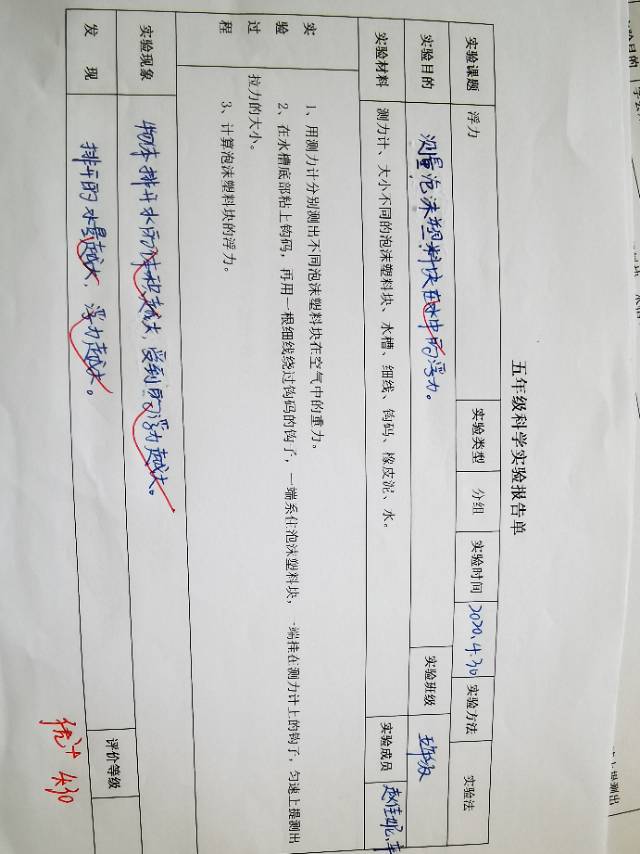 五年级科学实验报告单
实验课题 浮力 实验类型 分组 实验时间 2020.4.30 实验方法 实验法
实验目的 测量泡沫塑料块在水中的浮力。 实验班级 五年级
实验材料 测力计、大小不同的泡沫塑料块、水槽、细线、钩码、橡皮泥、水。 实验成员
实验过程
1、用测力计分别测出不同泡沫塑料块在空气中的重力。
2、在水槽底部粘上钩码，再用一根细线绕过钩码的钩子，一端系住泡沫塑料块，一端挂在测力计上的钩子，匀速上提测出
拉力的大小。
3、计算泡沫塑料块的浮力。
实验现象 物体排开水的体积越大，受到的浮力越大。
发现 排开的水量越大，浮力越大。
评价等级
优+ 4.30